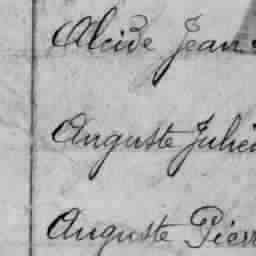 Alcide Jean
Auguste Julien
Auguste Pierr